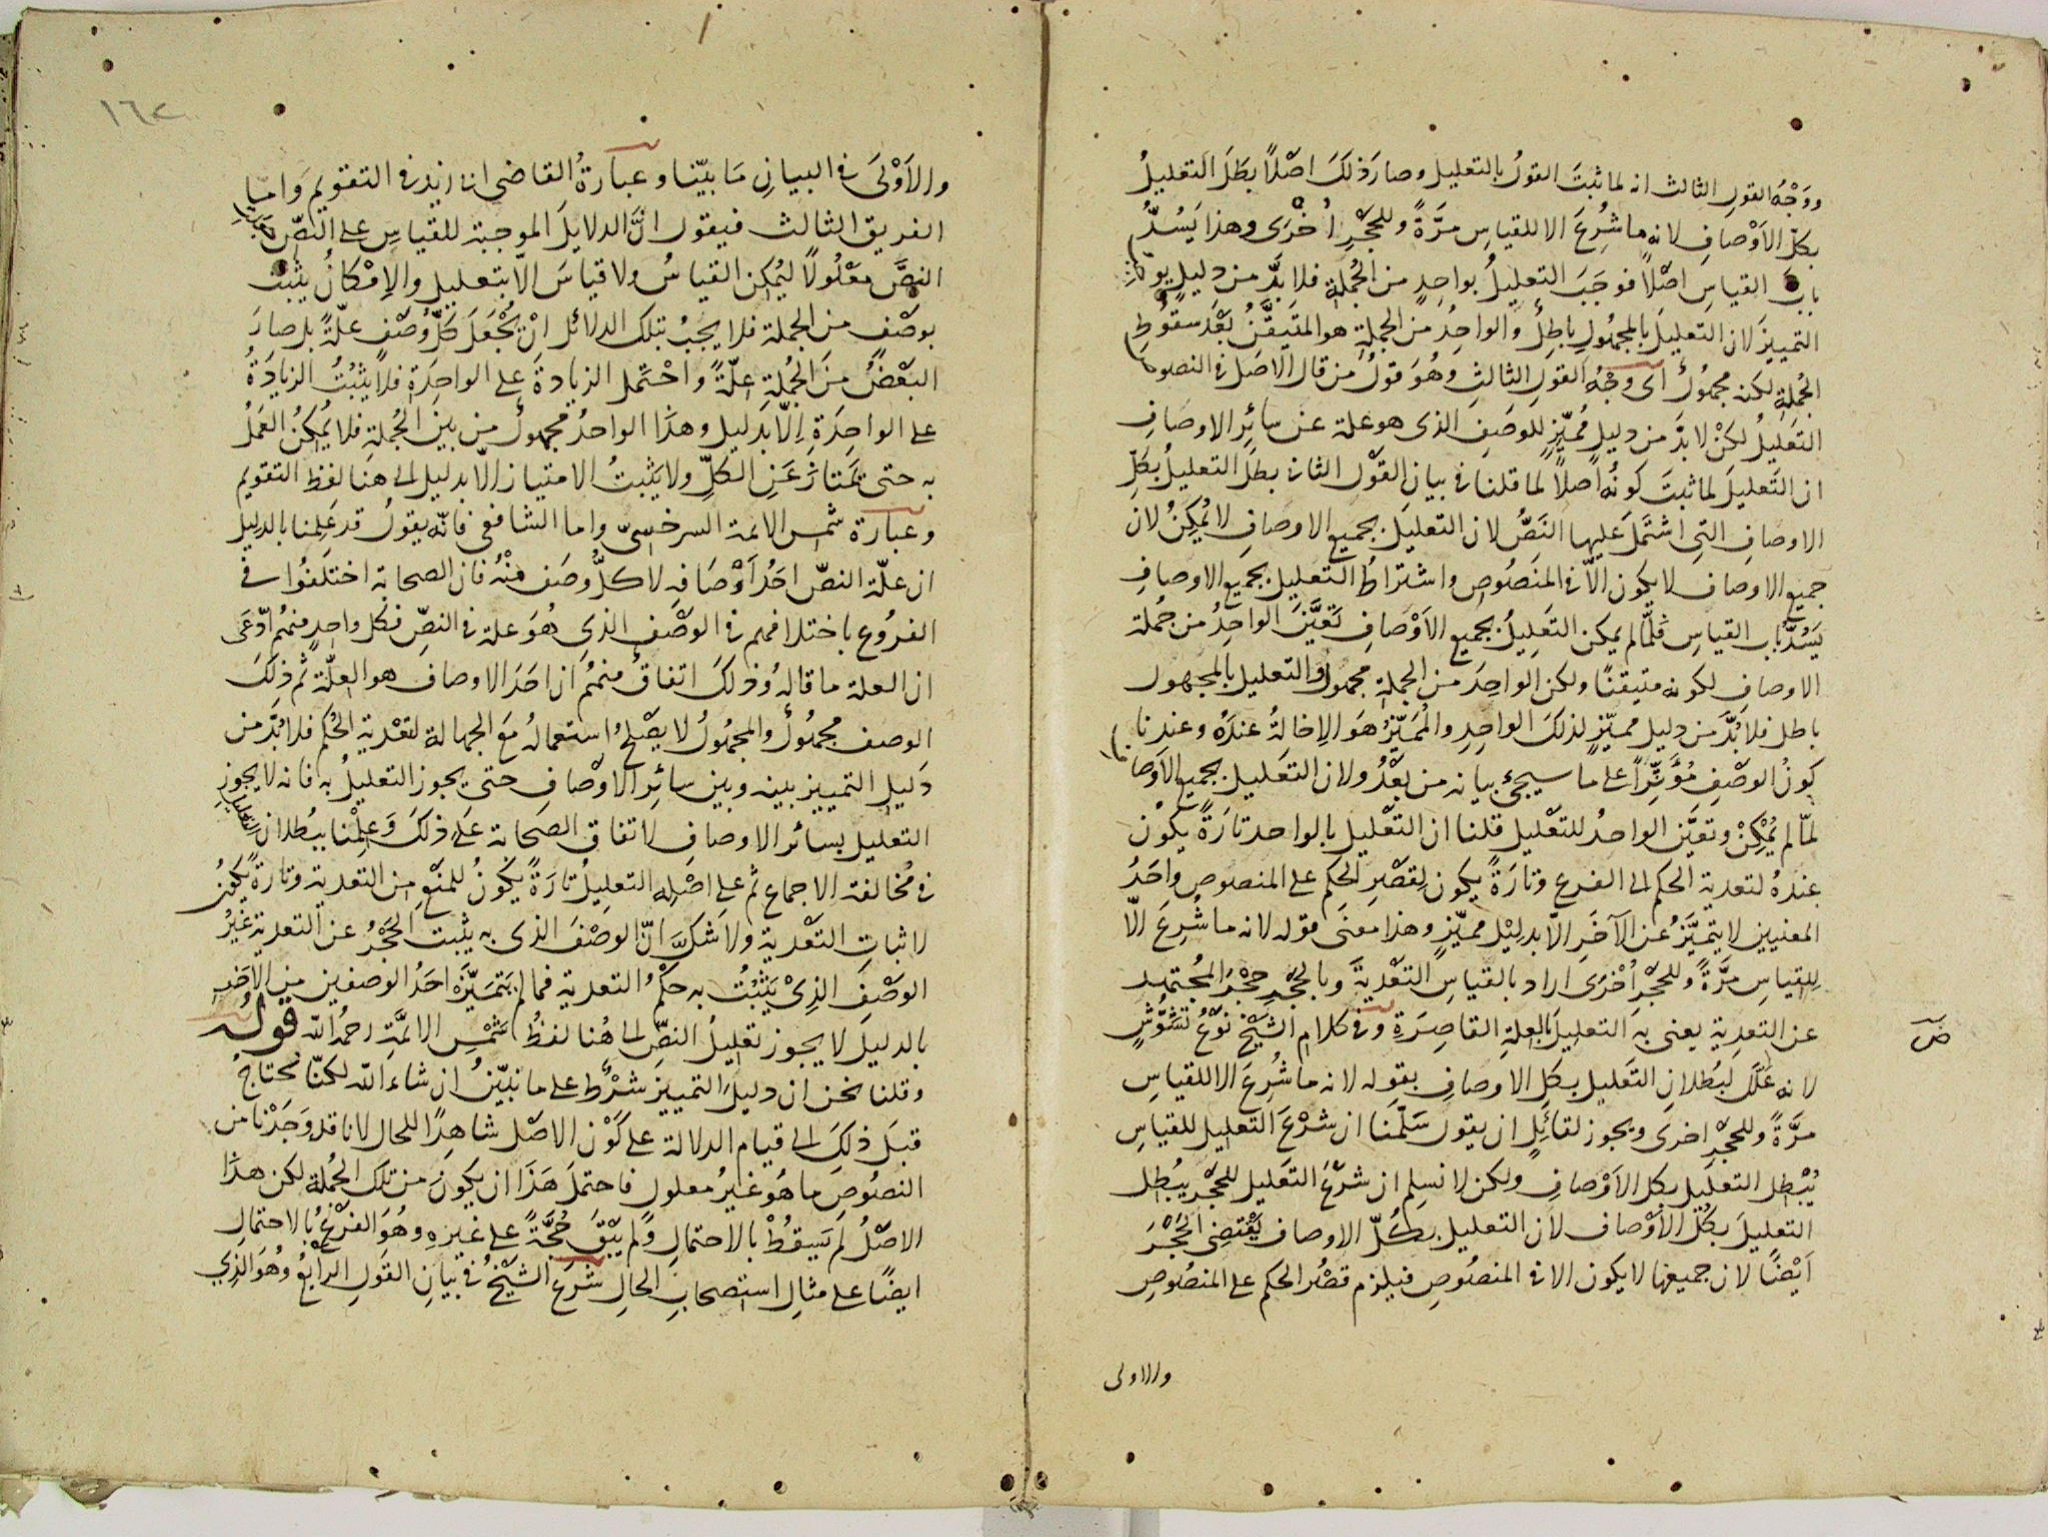 ووَجْهُ القول الثالث انه لما ثبتَ القولُ بالتعليل وصارَ ذلكَ اصْلاً بطَلَ التعليلُ
بكلّ الاَوْصافِ لانه ما شُرِعَ الا للقياسِ مَرَّةً وللحَجْرِ اُخْرَى وهذا يَسُدُّ
بابَ القياسِ اصْلاً فوجَبَ التعليلُ بواحِدٍ من الجُملةِ فلا بدَّ من دليلٍ يوجبُ
التمييزَ لان التعليلَ بالمجهُولِ باطِلٌ والواحِدُ من الجملةِ هو المتيَقَّنُ بَعْدَ سقُوطِ
الجُملةِ لكنه مجهُولٌ اى وَجْهُ القولِ الثالثِ وهُوَ قولُ من قال الاصَلُ في النصوصِ
التعليلُ لكنْ لا بدَّ من دليلٍ مُميّزٍ للوصَفِ الذى هو علة عن سائِر الاوصافِ
ان التعَليلَ لما ثبتَ كونُهُ اصلاً لما قلنا في بيانِ القوْل الثانى بطلَ التعليلُ بكلِّ
الاوصافِ التِى اشتَمَلَ عَليها النَصُّ لان التعليلَ بجميعِ الاوصافِ لا يُمْكِنُ لان
جميع الاوصاف لا يكون الاّ في المنصُوصِ واشتراطُ التعليل بجميع الاوصافِ
يَسُدُّ باب القياسِ فلمّا لم يمكن التعَليلُ بجميع الاَوْصافِ تعَيَّنَ الواحِدُ من جُملة
الاوصافِ لكونه متيقنًا ولكن الواحِدَ من الجملةِ مجهولٌ والتعليل بالمجهول
باطل فلا بُدَّ من دليل مميّزٍ لذلكَ الواحِدِ والمُمَيّزُ هوَ الاِخالةُ عندَهُ وعندنا
كونُ الوصْفِ مُؤَثِّراً على ما سيجئ بيانه من بعْدُ ولان التعَليلَ بجميعِ الاَوْصافِ
لمّا لم يُمْكِنْ وتعَيَّنَ الواحِدُ للتعْليل قلنا ان التعْليل بالواحد تارَةً يكوُن
عندهُ لتعدية الحكم الى الفرع وتارَةً يكون لِقصْرِ الحكِم على المنصوصِ واحَدُ
المعنيينِ لا يتميَّزُ عن الآخَرِ الاّ بدلِيْل مميّزٍ وهذا معنَى قوله لانه ما شُرِعَ الاّ
لِلقياسِ مرَّةً وللحَجْرِ اُخْرَى اراد بالقياسِ التعْديَةَ وبالحَجْرِ حَجْرَ المجُتهِد
عن التعدِيةِ يعنى به التعليلَ بالعلةِ القاصِرَةِ وفي كلامِ الشيْخِ نوْعُ تَشَوّشٍ
لانه عَلَّلَ لبُطلانِ التعْليل بكلِ الاوصافِ بقوله لانه ما شُرِعَ الا للقياسِ
مرَّةً وللحجْرِ اخرَى ويجوز لقائلٍ ان يقول سَلّمنا ان شَرْعَ التعليل للقياسِ
يُبْطِل التعليلَ بكل الاَوْصافِ ولكن لا نسلِم ان شَرْعَ التعَليل للحَجْر يبُطِل
التعليلَ بكُلِّ الاَوْصاف لان التعليلَ بكُلّ الاوصاف يقْتضِى الحَجْرَ
اَيْضًا لان جميعَها لا يكون الا في المنصُوصِ فيلزم قصْرُ الحكم على المنصُوصِ
والاولى
١٦٢
والاَوْلَى في البيانِ مَا بيّنا وعبارَةُ القاضى ابى زيد في التقويم وَامّا
الفريق الثالث فيقول انَّ الدلايلَ الموجبة للقياسِ على النصّ
النصَّ معْلُولاً ليُمكِن القياسُ ولا قياسَ الاّ بتعليل والاِمْكانُ يثبُت
بوصْف من الجملة فلا يجبُ بتلك الدلائل انْ يُجْعَلَ كلُّ وُصْف علّةً بل صارَ
البَعْضُ مِنَ الجُملةِ علّةً واحْتَمل الزيادةَ على الواحِدَةِ فلا يثبُتُ الزيادَةُ
على الواحِدَةِ اِلّا بدَليل وهذا الواحدُ مجهولٌ من بينِ الجُملةِ فلا يُمكِنُ العَمَلُ
به حتى يمَتازَ عَنِ الكلِّ ولا يَثبتُ الامتياز الاّ بدليل الى هنا لفظ التقويم
وعبارَة شمس الائمة السرخسىّ واما الشافعى فانّه يقولُ قد عَلِمنا بالدليل
ان علّة النصّ احَدُ اَوْصَافِه لا كلُّ وصَف منْهُ فان الصحابة اختَلفُوا في
الفرُوع باختلافهم في الوصْف الذِى هُوَ علة في النصِّ فكل واحدٍ منهم ادّعَى
ان العلة ما قالهُ وذلكَ اتفاقٌ منهُم ان احَدَ الاوصاف هو العِلّةُ ثم ذلكَ
الوصف مجهُولٌ والمجهُولُ لا يصْلُحُ استعمالهُ معَ الجهالة لتعْدية الحُكم فلا بُدَّ من
دَليل التمييز بينه وبين سائِر الاوْصافِ حتى يجوز التعليلُ به فانه لا يجوز
التعليل بسائر الاوصافِ لاتفاق الصَحابة عَلى ذلكَ وَعِلِمْنا ببُطلان التعليل
في مُخالفة الاجماع ثم على اصْلِه التعليلُ تارَةً يكُونُ للمنْعِ من التعدية وتارَةً يكُونُ
لاثباتِ التعْديةِ ولا شَكَّ انّ الوصْفَ الذى به يثبت الحَجْرُ عن التعدية غيْرُ
الوصْفِ الذِىْ يَثبُتُ به حكمُ التعدية فما لم يَتمَيّزْ احَدُ الوصفينِ من الاخرِ
بالدليلَ لا يجوز تعليلُ النصِّ الى هُنا لفظُ شمْسِ الائمَّةِ رحمهُ اللّه قولهُ
وقلنا نحن ان دليلَ التمييزَ شرْطٌ على ما نبيّنُ ان شاء اللّه لكنّا نحتاجُ
قبلَ ذلكَ الى قيام الدلالة على كَوْنِ الاصْل شاهِدًا للحال لانا قد وَجَدْنا من
النصوُصِ ما هُو غيرُ معلولٍ فاحتملَ هَذَا ان يكونَ من تلكَ الجُملة لكن هذا
الاصْلُ لَم يَسقُطْ بالاحتمالِ ولم يبْقَ حُجَّةً على غيرِهِ وهُوَ الفرْعُ بالاحتمالِ
ايضًا على مثالِ استصحابِ الحَالِ شرَعَ الشيْخُ في بيانِ القَولِ الرابعُ وهُوَ الذِي